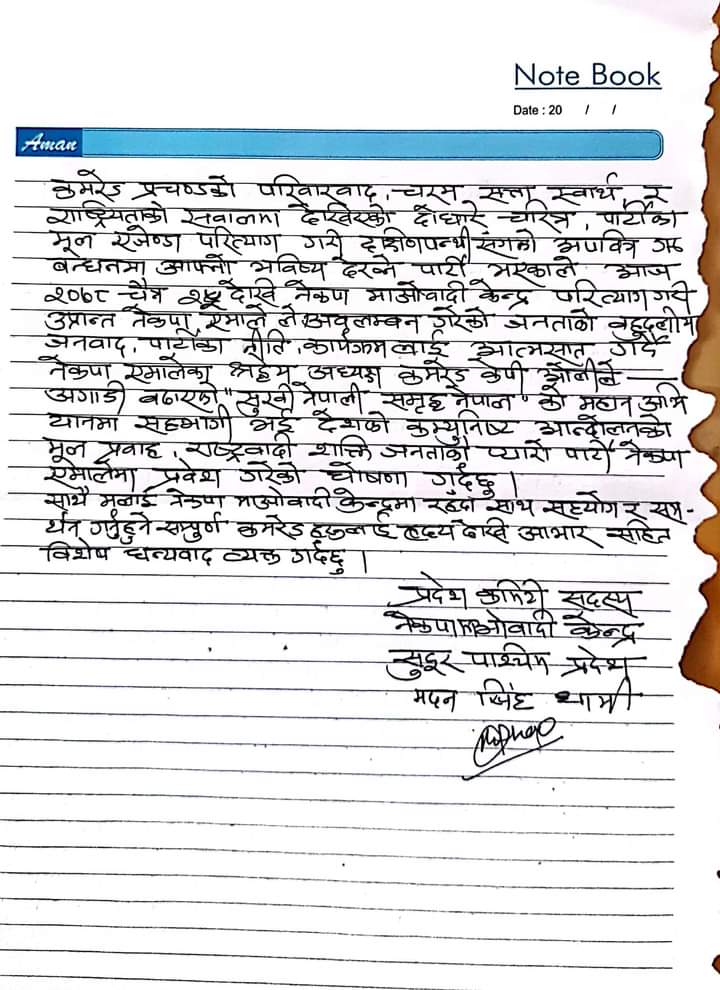 Note Book
Date : 20 / /
Aman
कमरेड प्रचण्डको परिवारवाद, चरम सत्ता स्वार्थ, र
राष्ट्रियताको सवालमा देखिएको दोधारे चरित्र, पार्टीका
मूल एजेण्डा परित्याग गरी दक्षीणपन्थी संगको अपवित्र गठ
बन्धनमा आफ्नो भविष्य देख्ने पार्टी भएकाले आज
२०७८ चैत्र देखि नेकपा माओवादी केन्द्र परित्याग गरी
उप्रान्त नेकपा एमाले ले अवलम्बन गरेको जनताको बहुदलीय
जनवाद, पार्टीका नीति, कार्यक्रमलाई आत्मसात गर्दै
नेकपा एमालेका अध्यक्ष कमरेड केपी ओलीले
अगाडी बढाएको "सुखी नेपाली समृद्ध नेपाल" को महान अभि
यानमा सहभागी भई देशको कम्युनिष्ट आन्दोलनको
मूल प्रवाह, राष्ट्रवादी शक्ति जनताको प्यारो पार्टी नेकपा
एमालेमा प्रवेश गरेको घोषणा गर्दछु ।
साथै मलाई नेकपा माओवादी केन्द्रमा रहँदा साथ, सहयोग र सम-
र्थन गर्नुहुने सम्पुर्ण कमरेड हरुलाई हृदय देखि आभार सहित
विशेष धन्यवाद व्यक्त गर्दछु ।
प्रदेश कमिटी सदस्य
नेकपा माओवादी केन्द्र
सुदूर पाश्चिम प्रदेश
मदन सिंह धामी